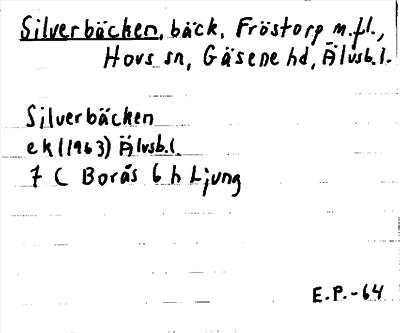 Silverbäcken, bäck, Fröstorp m.fl.,
Hovs sn, Gäsene hd, Älvsb.l.
Silverbäcken
ek (1963) Älvsb.l.
7 C Borås 6 h Ljung
E.P.-64